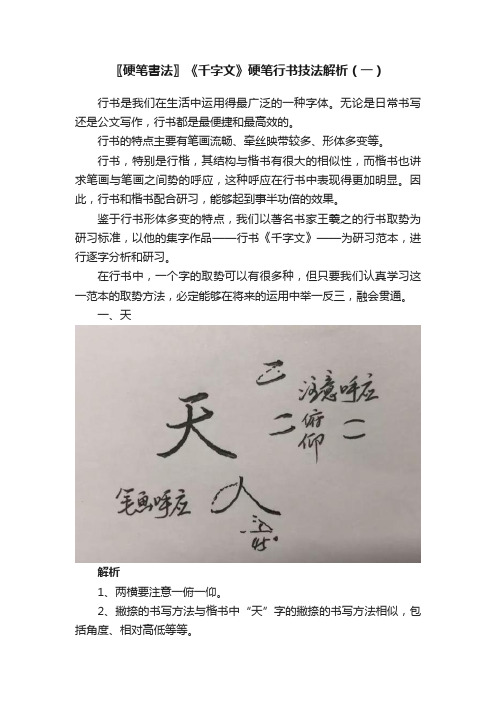 〖硬笔書法〗《千字文》硬笔行书技法解析（一）
行书是我们在生活中运用得最广泛的一种字体。无论是日常书写
还是公文写作，行书都是最便捷和最高效的。
行书的特点主要有笔画流畅、牵丝映带较多、形体多变等。
行书，特别是行楷，其结构与楷书有很大的相似性，而楷书也讲
求笔画与笔画之间势的呼应，这种呼应在行书中表现得更加明显。因
此，行书和楷书配合研习，能够起到事半功倍的效果。
鉴于行书形体多变的特点，我们以著名书家王羲之的行书取势为
研习标准，以他的集字作品——行书《千字文》——为研习范本，进
行逐字分析和研习。
在行书中，一个字的取势可以有很多种，但只要我们认真学习这
一范本的取势方法，必定能够在将来的运用中举一反三，融会贯通。
一、天
天
注意呼应
俯
仰
笔画呼应
45°
解析
1、两横要注意一俯一仰。
2、撇捺的书写方法与楷书中“天”字的撇捺的书写方法相似，包
括角度、相对高低等等。